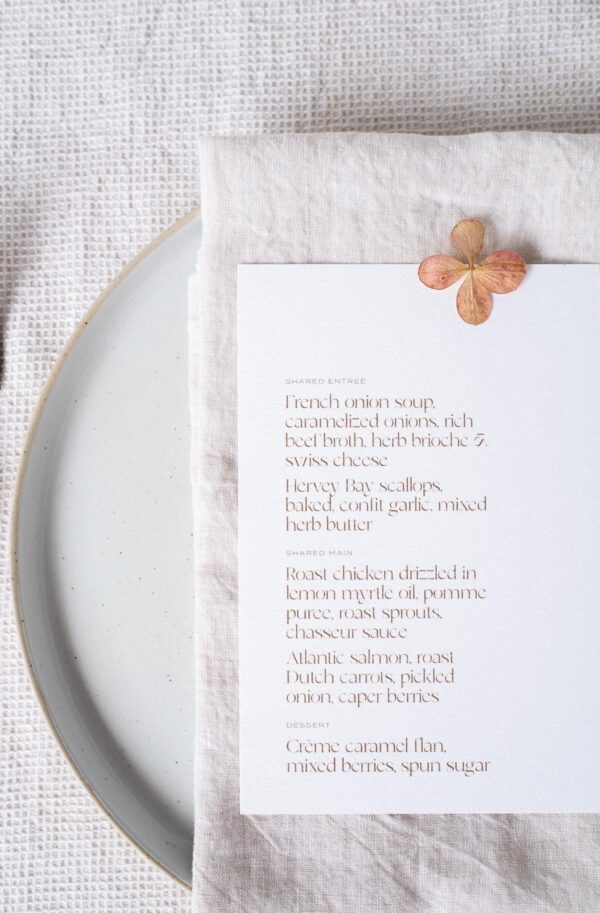 SHARED ENTREE
French onion soup,
caramelized onions, rich
beef broth, herb brioche &
swiss cheese
Hervey Bay scallops,
baked, confit garlic, mixed
herb butter
SHARED MAIN
Roast chicken drizzled in
lemon myrtle oil, pomme
puree, roast sprouts,
chasseur sauce
Atlantic salmon, roast
Dutch carrots, pickled
onion, caper berries
DESSERT
Crème caramel flan,
mixed berries, spun sugar